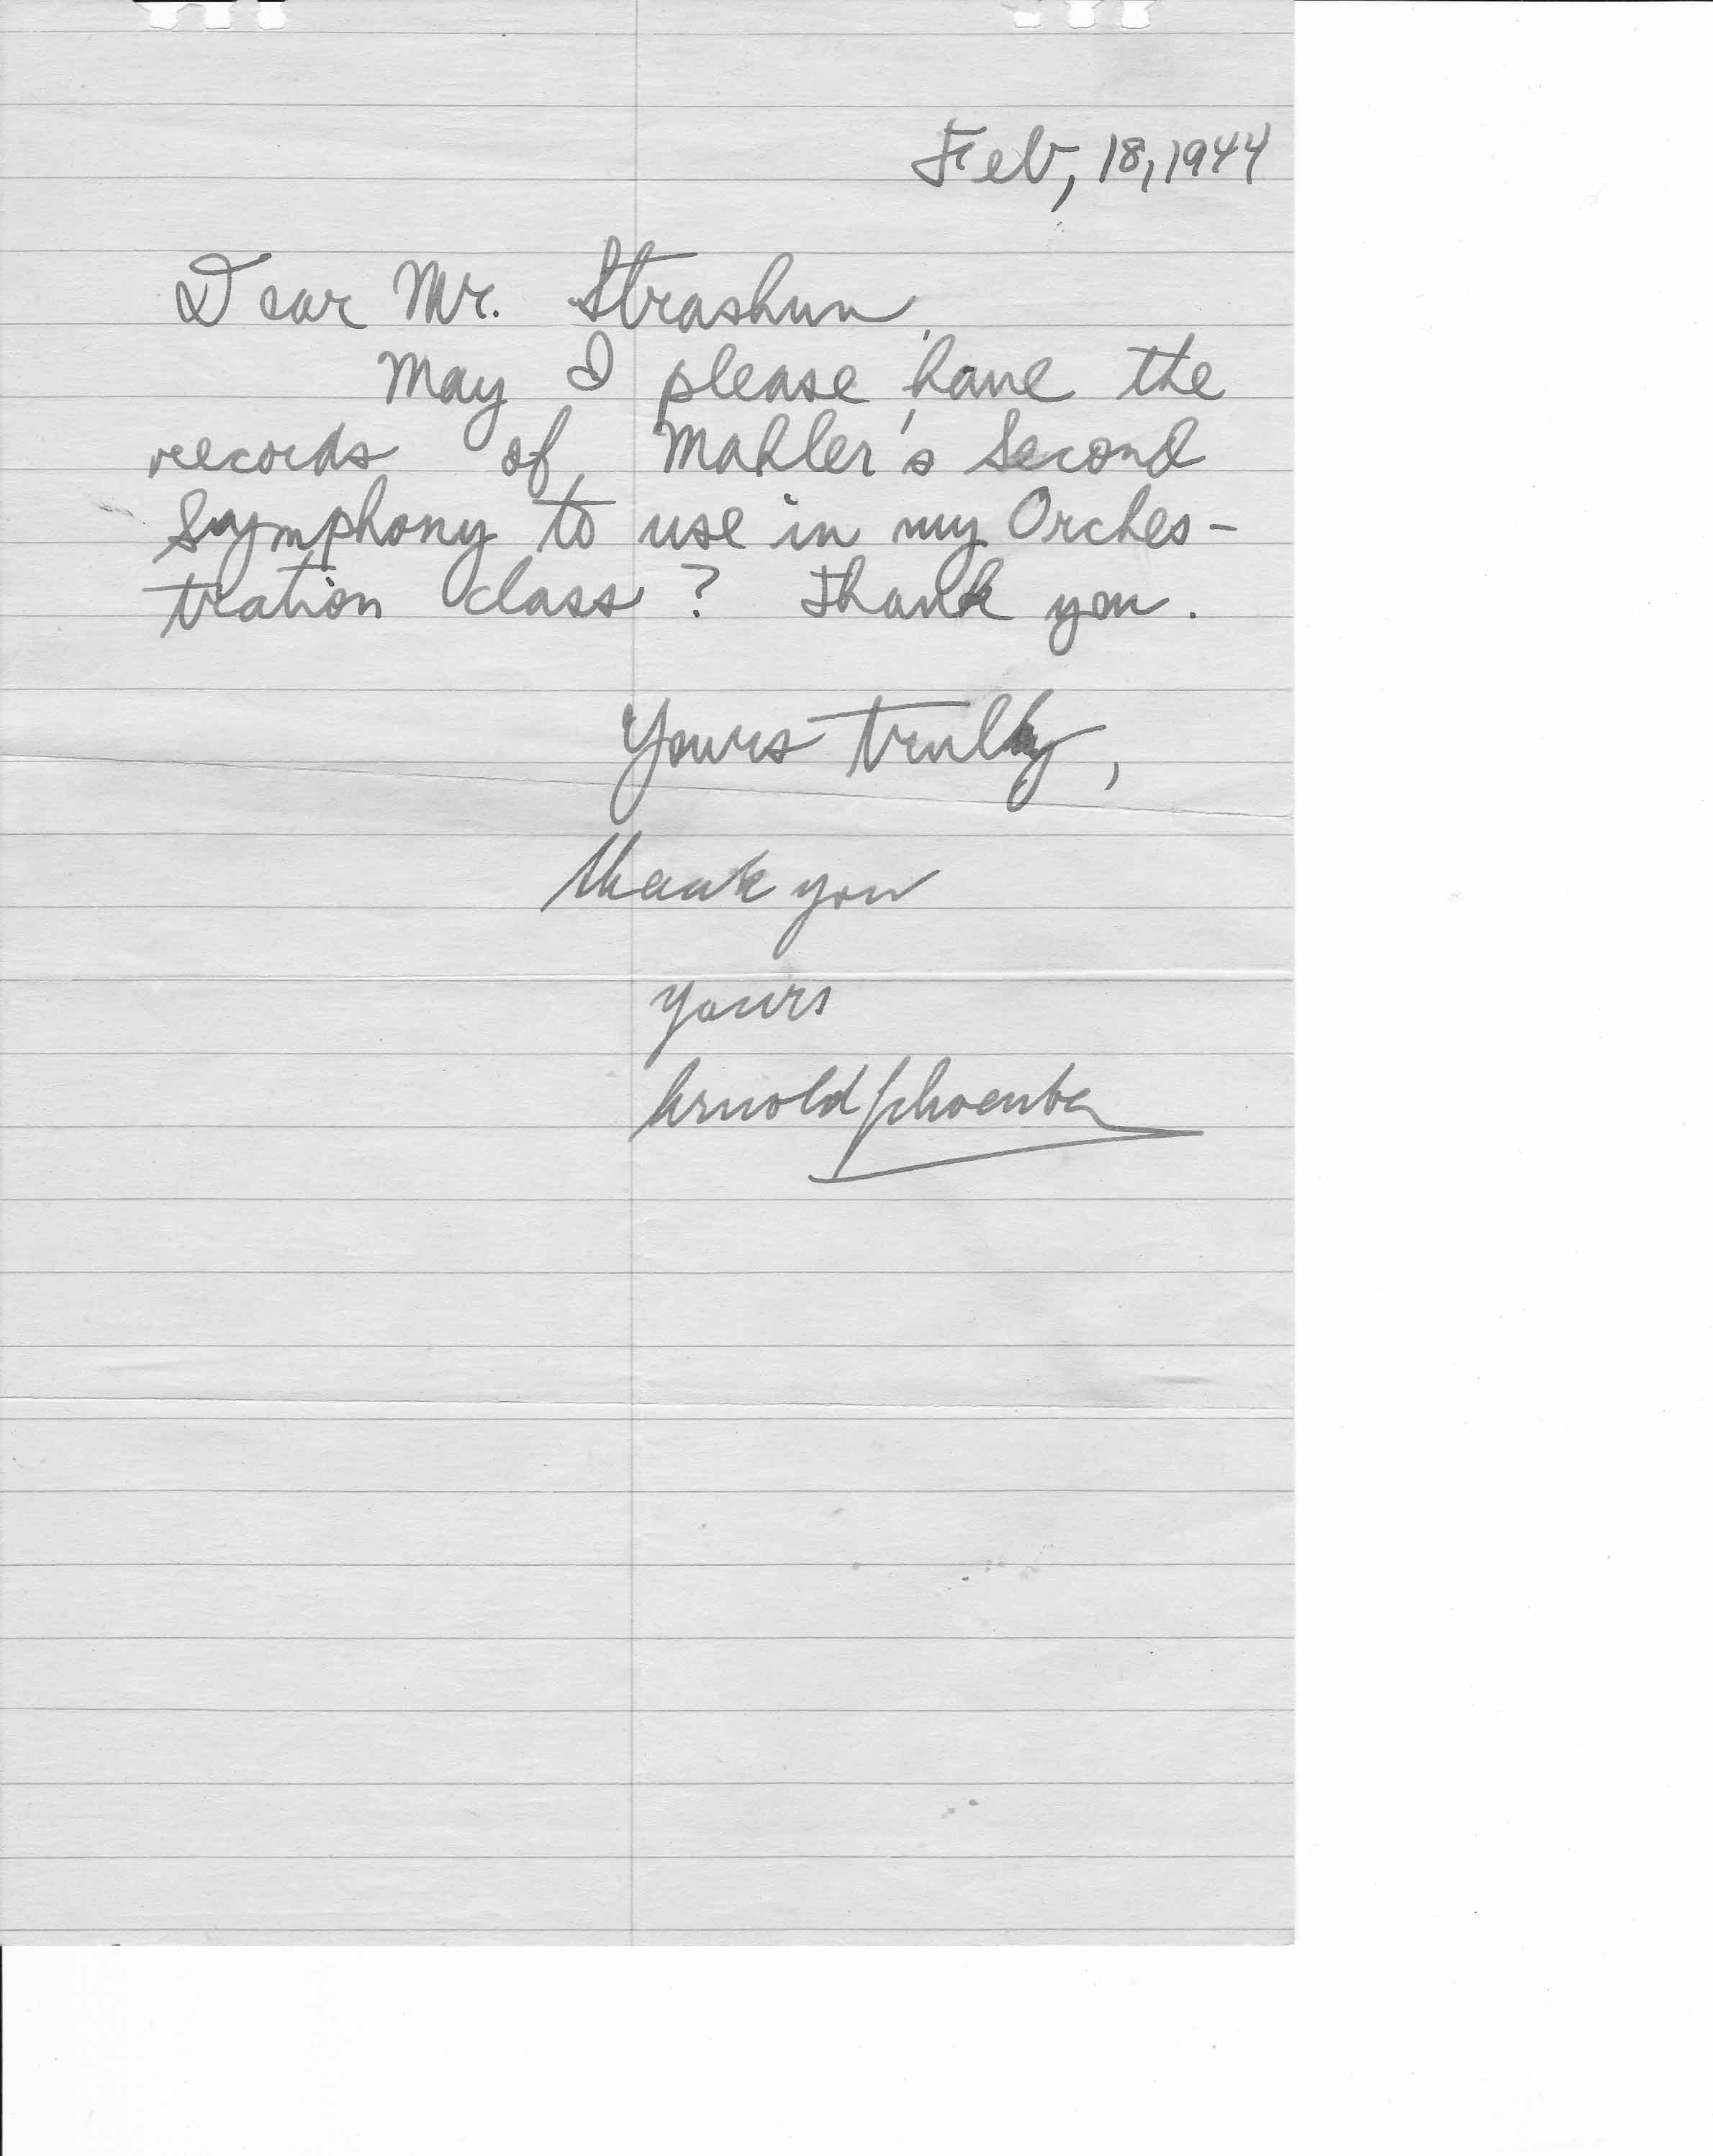 Feb, 18, 1944
Dear Mr. Strashun,
May I please have the
records of Mahler's Second
Symphony to use in my Orches-
tration class? Thank you.
Yours truly,
thank you
yours
Arnold Schoenberg